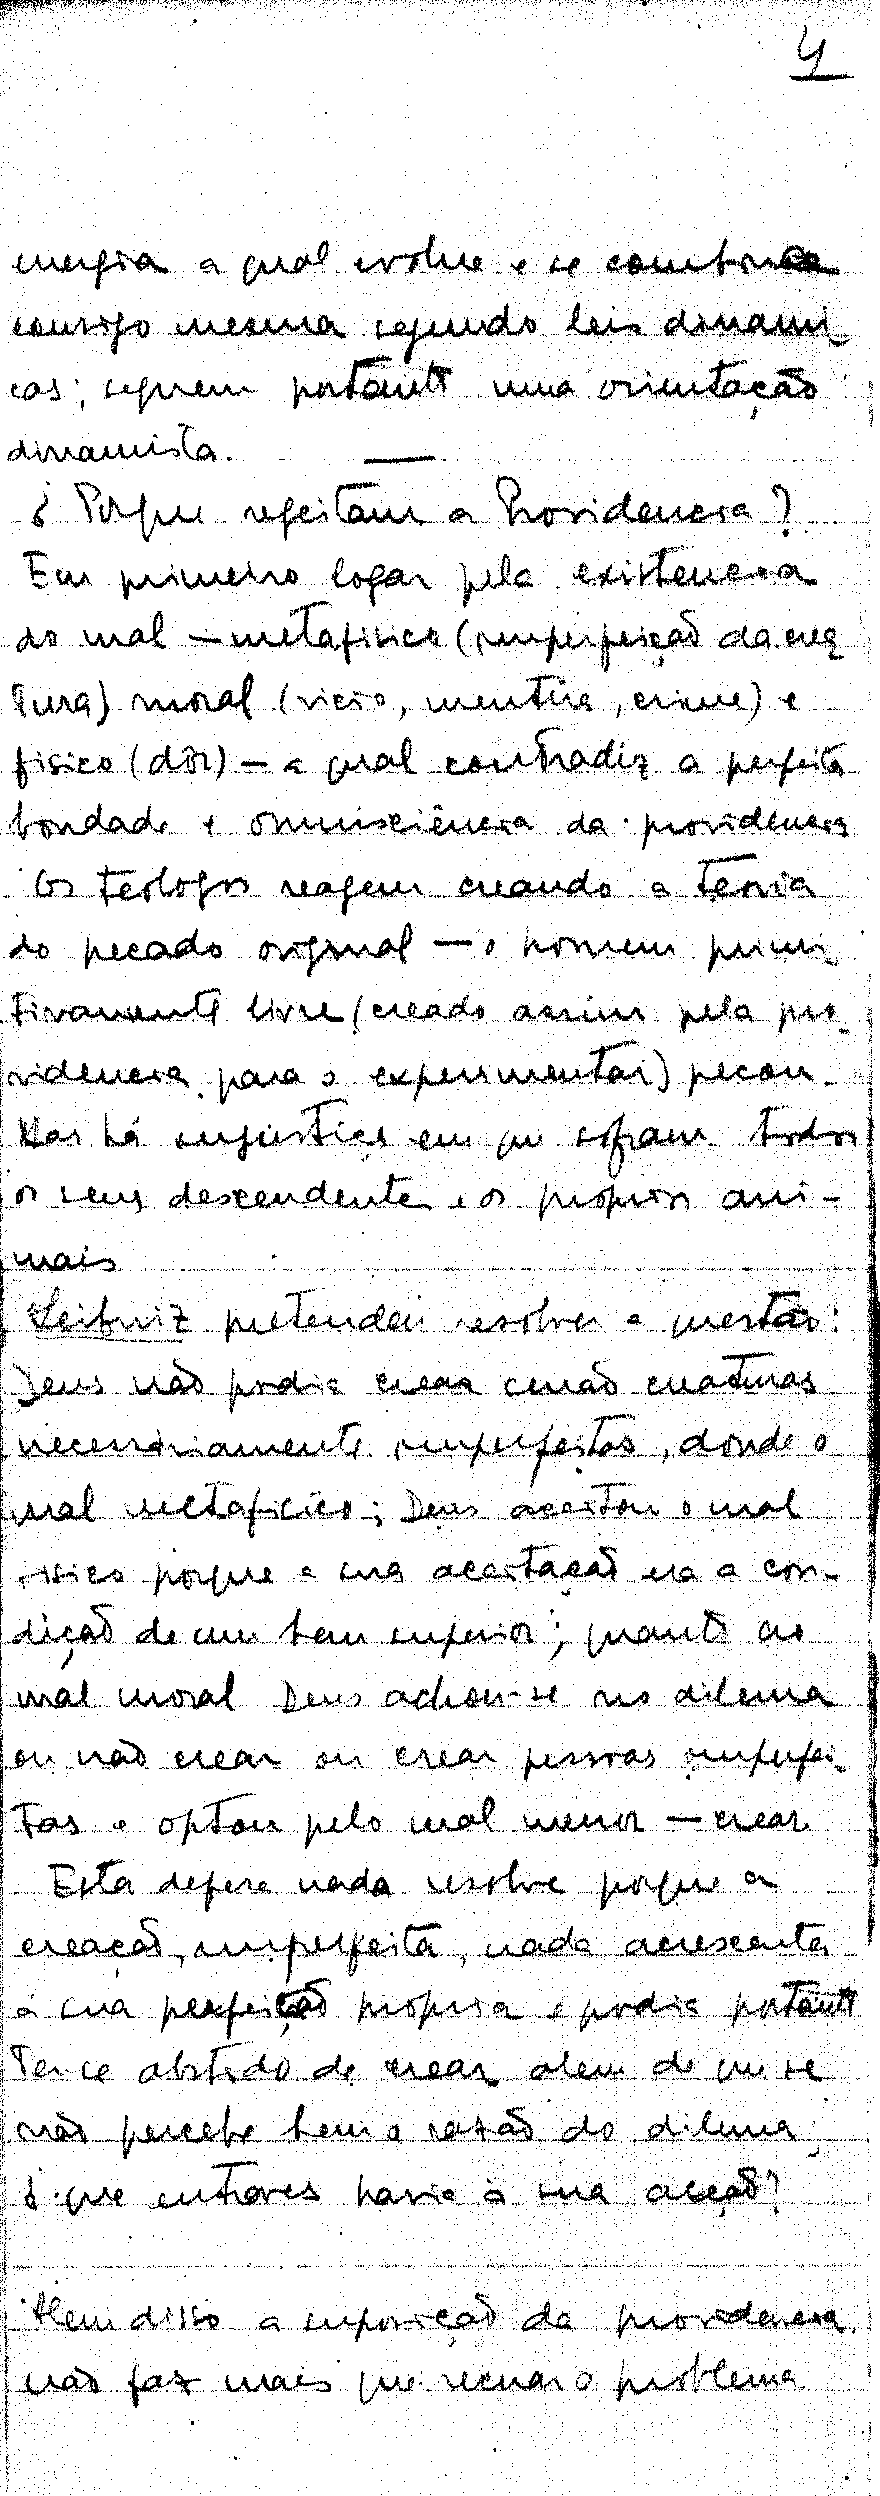 4
energia a qual evolue e se combina
consigo mesma segundo leis dinami
cas; seguem portanto uma orientação
dinamista. —
¿ Porque regeitam a Providencia?
Em primeiro logar pela existencia
do mal — metafisico (imperfeição da crea
tura) moral (vicio, mentira, crime) e
fisico (dôr) — a qual contradiz a perfeita
bondade e omnisciência da providencia
Os teologos reagem creando a teoria
do pecado original — o homem primi
tivamente livre (creado assim pela pro-
videncia para o experimentar) pecou.
Mas há injustiça em que sofram todos
os seus descendentes e os proprios ani-
mais
Leibniz pretendeu resolver a questão:
Deus não podia crear senão creaturas
necessariamente imperfeitas, donde o
mal metafisico; Deus aceitou o mal
fisico porque a sua aceitação era a con-
dição de um bem superior; quanto ao
mal moral Deus achou-se no dilema
ou não crear ou crear pessoas imperfei-
tas e optou pelo mal menor — crear
Esta defesa nada resolve porque a
creação, imperfeita, nada acrescenta
á sua perfeição propria e podia portanto
ter-se abstido de crear alem de que se
não percebe bem a razão do dilema;
¿ que entraves havia á sua acção?
Alem disso a suposição da providencia
não faz mais que recuar o problema